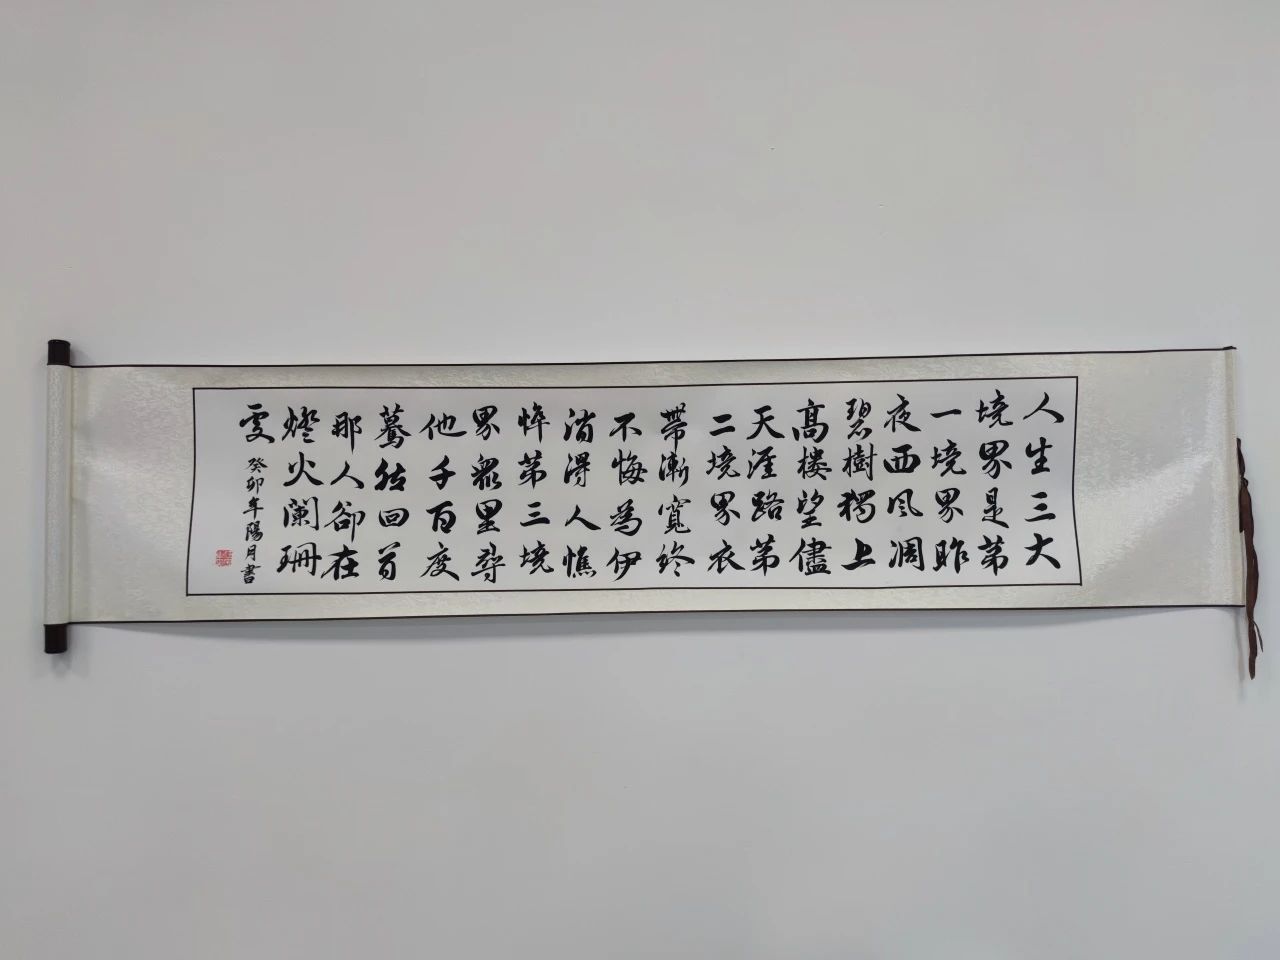 人生三大
境界是第
一境界昨
夜西风凋
碧樹獨上
高楼望儘
天涯路第
二境界衣
帶漸寬終
不悔為伊
消得人憔
悴第三境
界眾里尋
他千百度
驀然回首
那人卻在
燈火闌珊
處
癸卯年陽月書